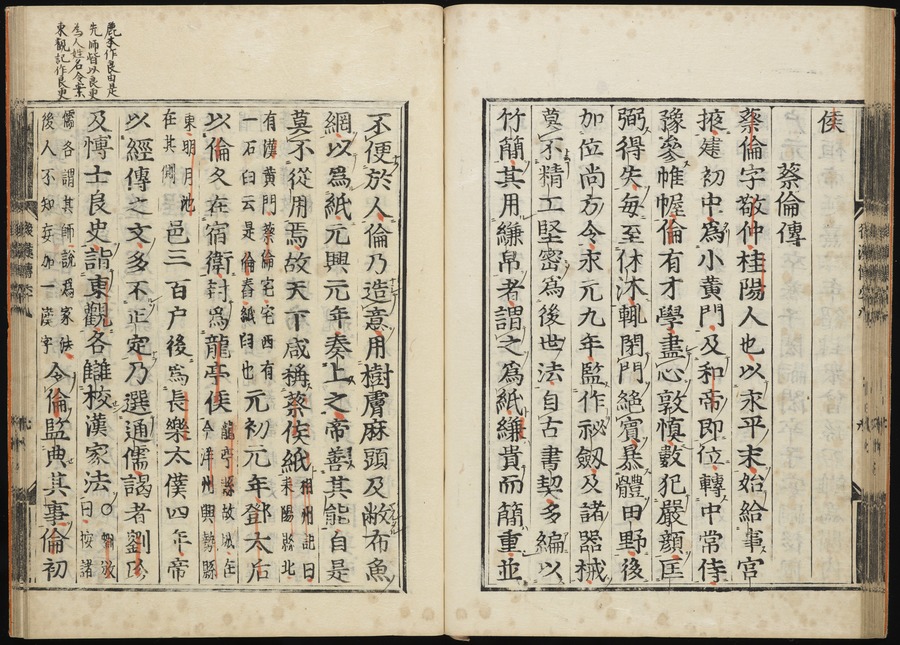 侯
蔡倫傳
蔡倫字敬仲桂陽人也以永平末始給事宮
掖建初中爲小黃門及和帝即位轉中常侍
豫參帷幄倫有才學盡心敦慎數犯嚴顏匡
弼得失每至休沐輒閉門絕賓暴體田野後
加位尚方令永元九年監作祕劔及諸器械
莫不精工堅密爲後世法自古書契多編以
竹簡其用縑帛者謂之爲紙縑貴而簡重並
先師皆以良史
爲人姓名今案
東觀記作良吏
不便於人倫乃造意用樹膚麻頭及敝布魚
網以爲紙元興元年奏上之帝善其能自是
莫不從用焉故天下咸稱蔡侯紙相州記曰耒陽縣北
有漢黃門蔡倫宅宅西有一石臼云是倫舂紙臼也元初元年鄧太后
以倫久在宿衛封爲龍亭侯龍亭縣故城在今洋州興勢縣
東明月池在其側邑三百户後爲長樂太僕四年帝
以經傳之文多不正定乃選通儒謁者劉珍
及博士良史詣東觀各讎校漢家法〇劉攽曰按諸
儒各謂其師說爲家法後人不知妄加一漢字令倫監典其事倫初